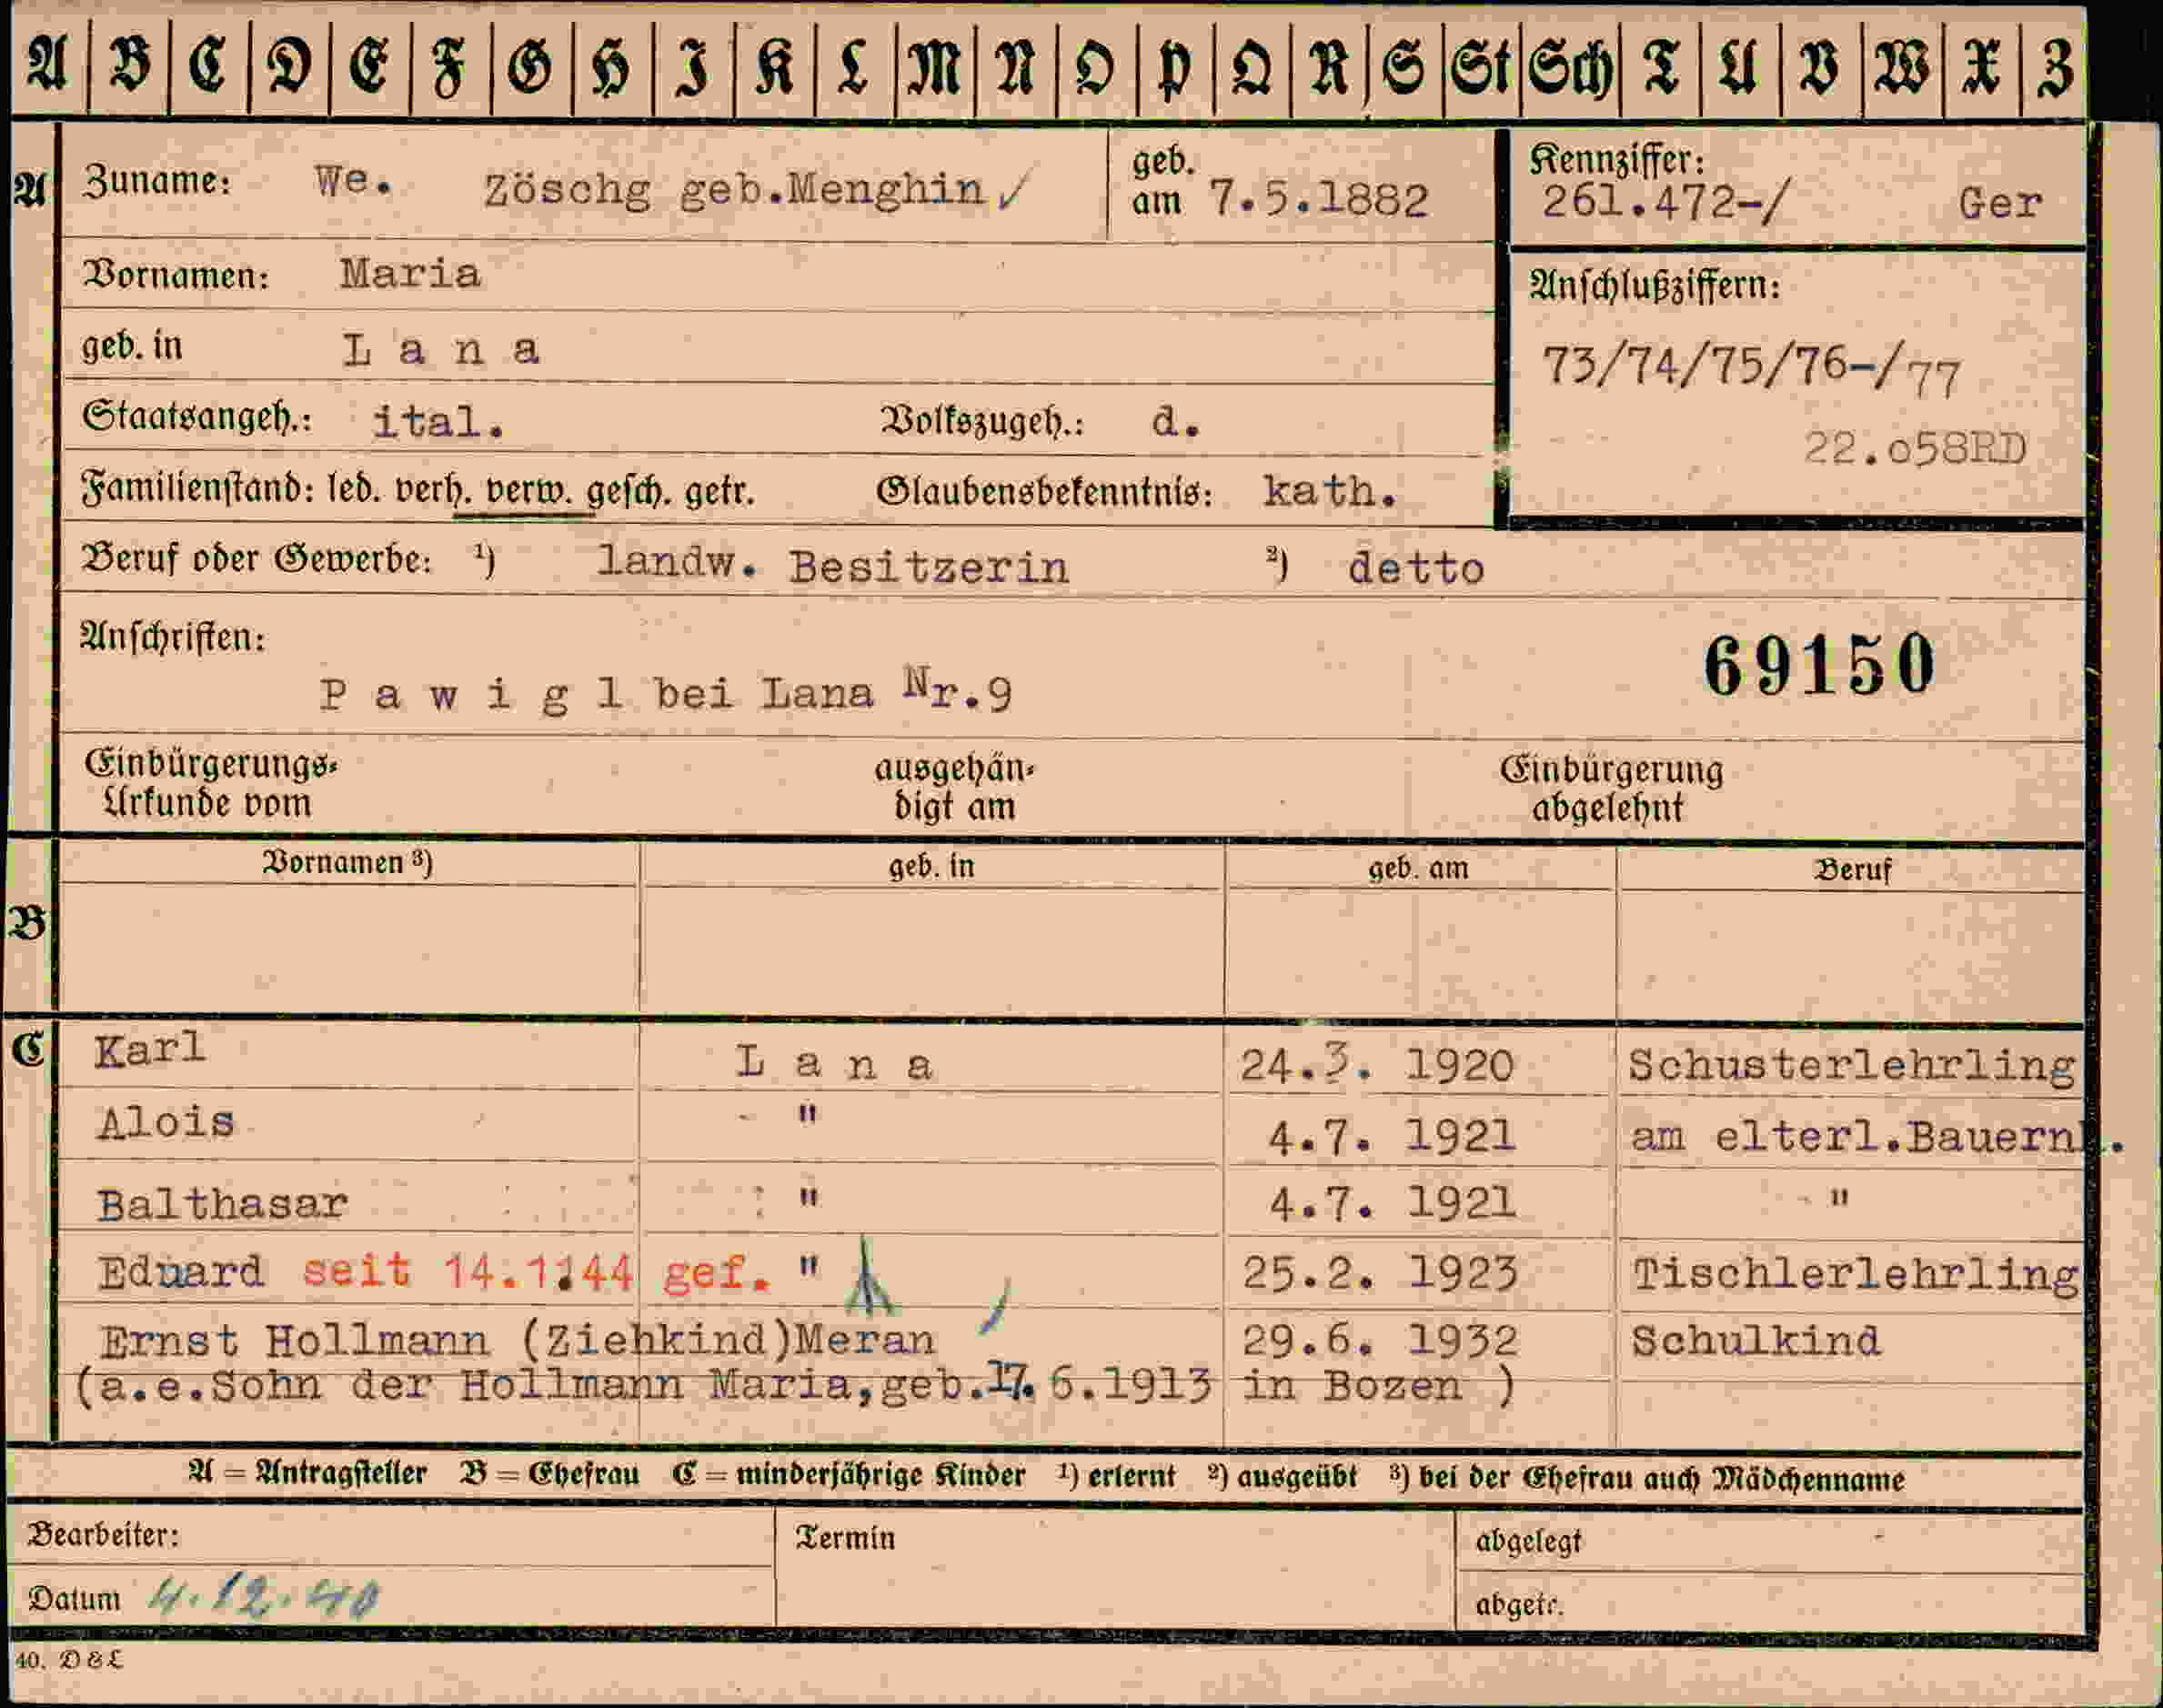 A B C D E F G H I K L M N O P Q R S St Sch T U V W X Z
A Zuname: We. Zöschg geb.Menghin ✓ geb. am 7.5.1882
Kennziffer: 261.472-/ Ger
Vornamen: Maria
Anschlußziffern:
geb. in L a n a
73/74/75/76-/77
Staatsangeh.: ital. Volkszugeh.: d.
22.o58RD
Familienstand: led. verh. verw. gesch. getr. Glaubensbekenntnis: kath.
Beruf oder Gewerbe: 1) landw. Besitzerin 2) detto
Anschriften:
69150
P a w i g l bei Lana Nr.9
Einbürgerungs- ausgehän- Einbürgerung
Urkunde vom digt am abgelehnt
Vornamen 3) geb. in geb. am Beruf
B
C Karl L a n a 24.3. 1920 Schusterlehrling
Alois " 4.7. 1921 am elterl.Bauernh.
Balthasar " 4.7. 1921 "
Eduard seit 14.1.44 gef. " 25.2. 1923 Tischlerlehrling
Ernst Hollmann (Ziehkind)Meran 29.6. 1932 Schulkind
(a.e.Sohn der Hollmann Maria,geb.17.6.1913 in Bozen )
A = Antragsteller B = Ehefrau C = minderjährige Kinder 1) erlernt 2) ausgeübt 3) bei der Ehefrau auch Mädchenname
Bearbeiter: Termin abgelegt
Datum 4.12.40 abgetr.
40. D & L